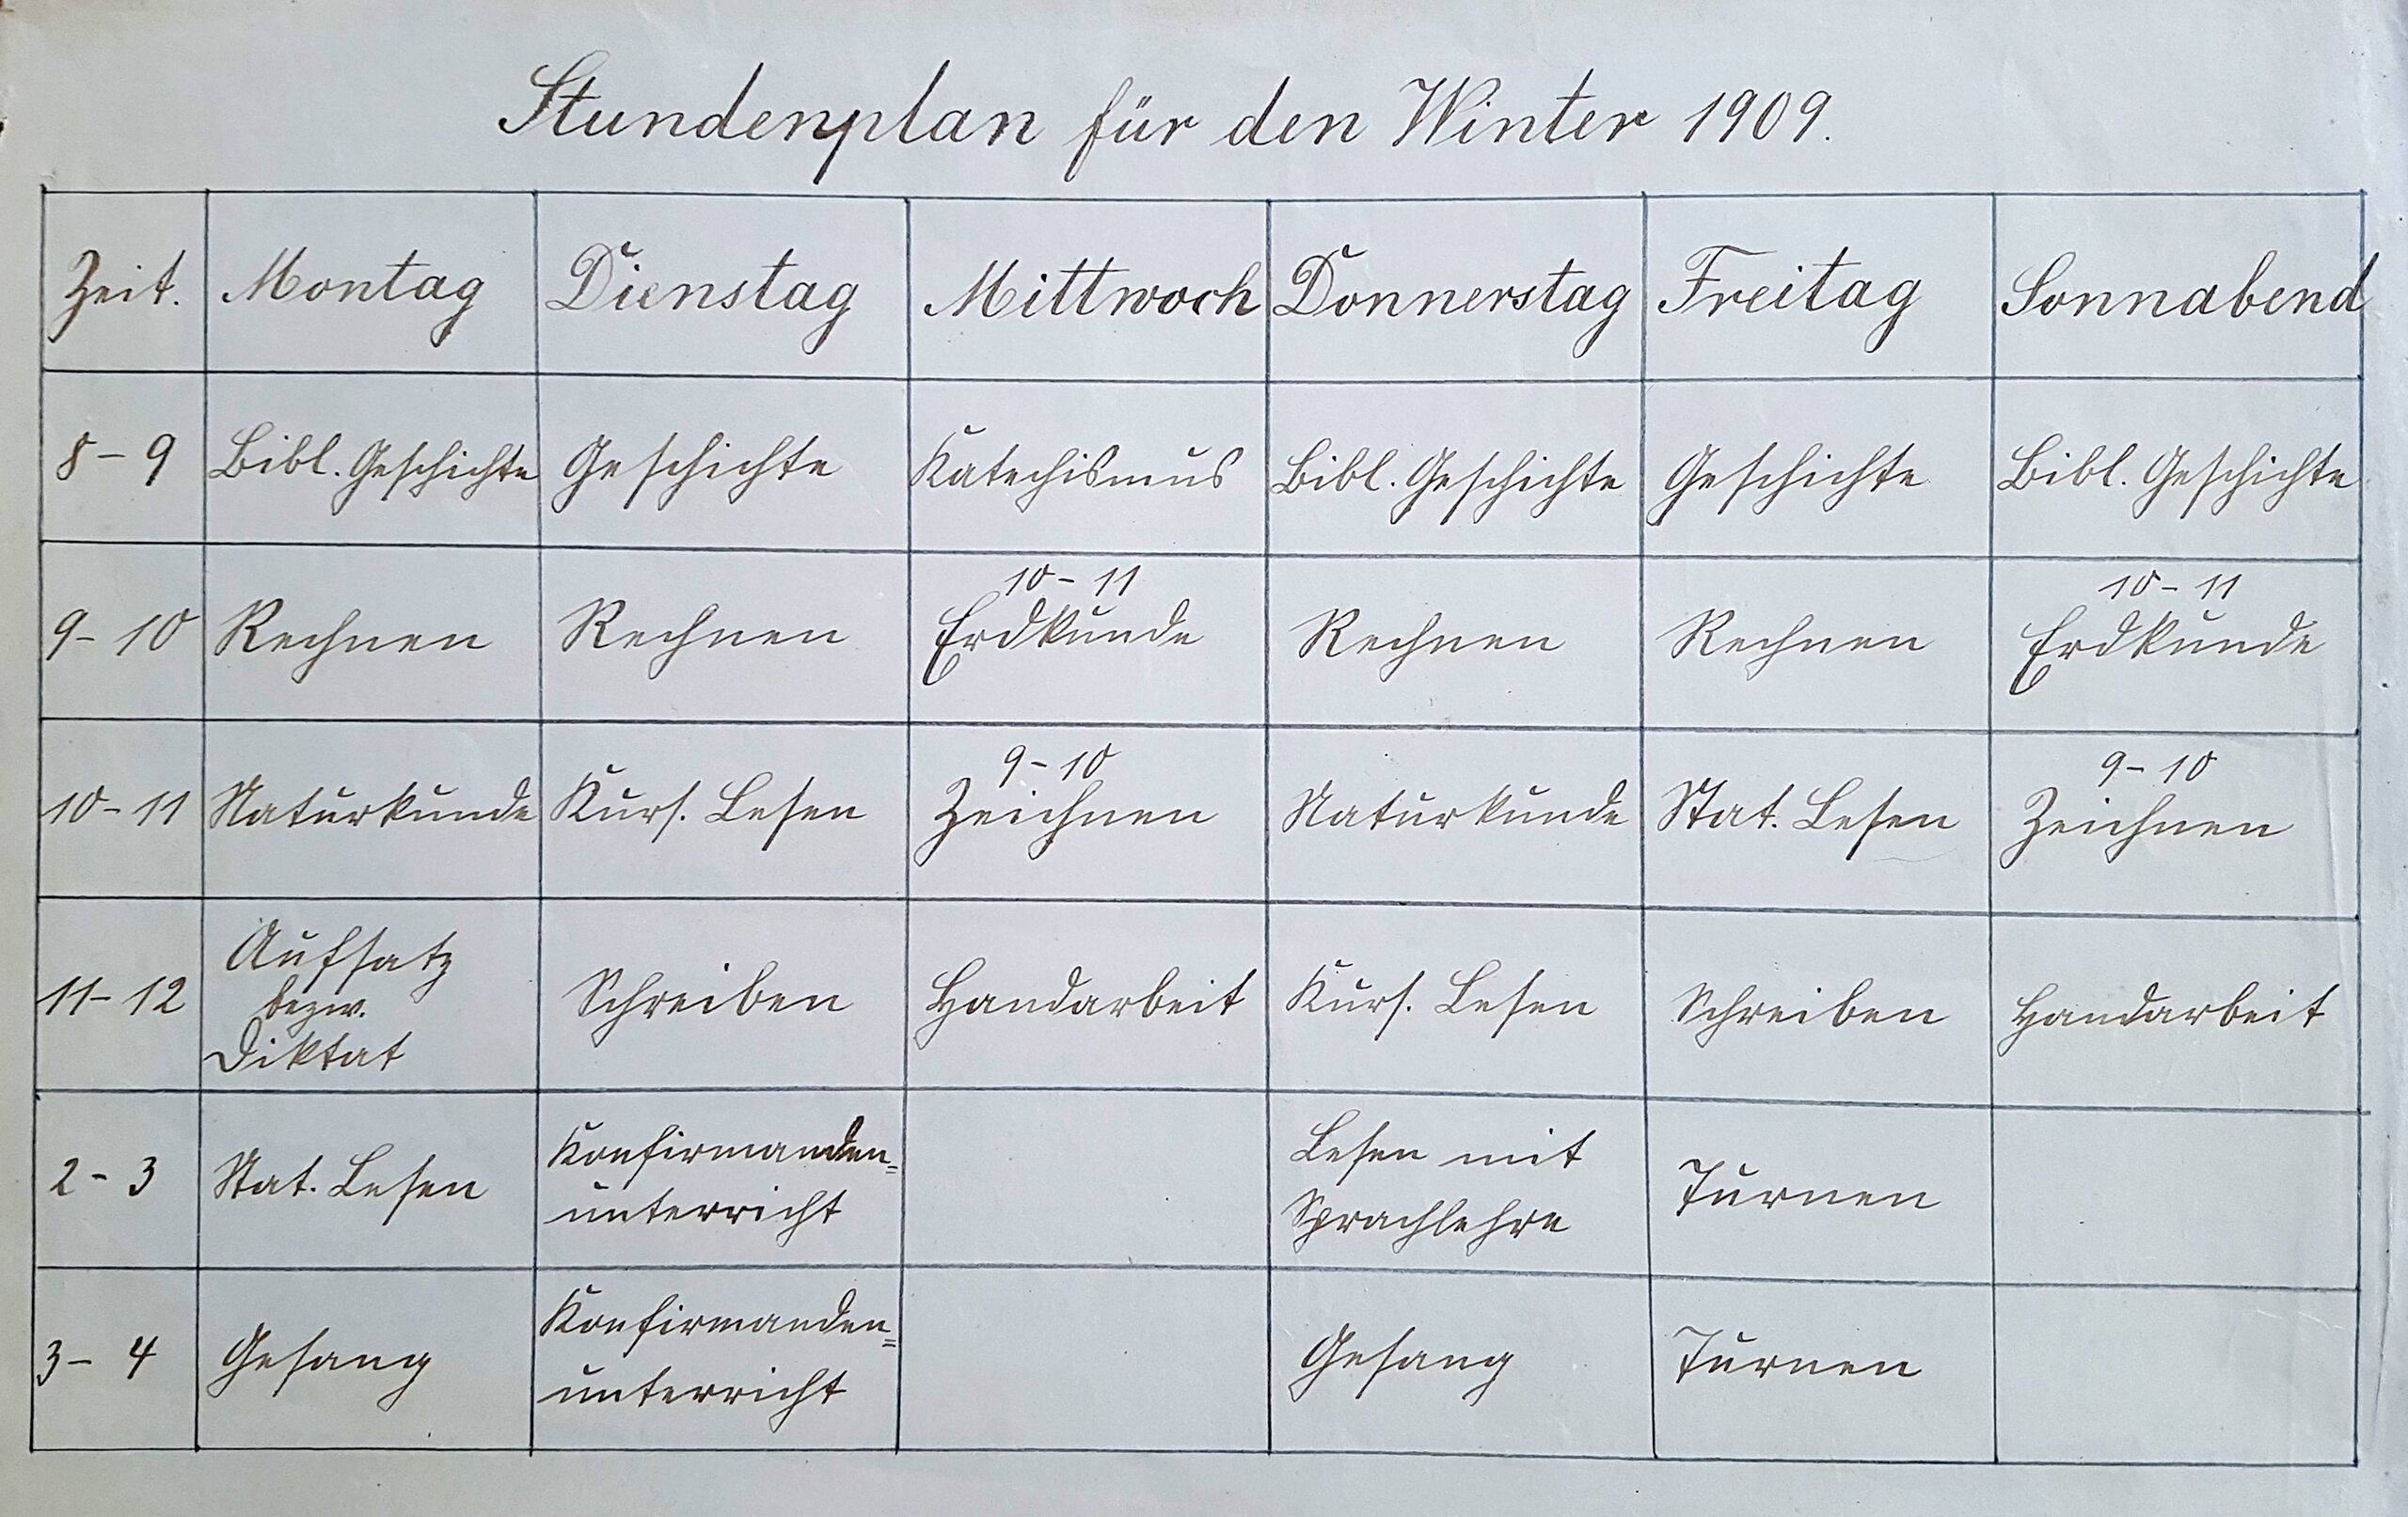 Stundenplan für den Winter 1909.
Zeit. Montag Dienstag Mittwoch Donnerstag Freitag Sonnabend
8-9 Bibl. Geschichte Geschichte Katechismus Bibl. Geschichte Geschichte Bibl. Geschichte
10-11 10-11
9-10 Rechnen Rechnen Erdkunde Rechnen Rechnen Erdkunde
9-10 9-10
10-11 Naturkunde Kurs. Lesen Zeichnen Naturkunde Stat. Lesen Zeichnen
Aufsatz
11-12 bezw. Schreiben Handarbeit Kurs. Lesen Schreiben Handarbeit
Diktat
Konfirmanden= Lesen mit
2-3 Stat. Lesen unterricht Sprachlehre Turnen
Konfirmanden=
3-4 Gesang unterricht Gesang Turnen